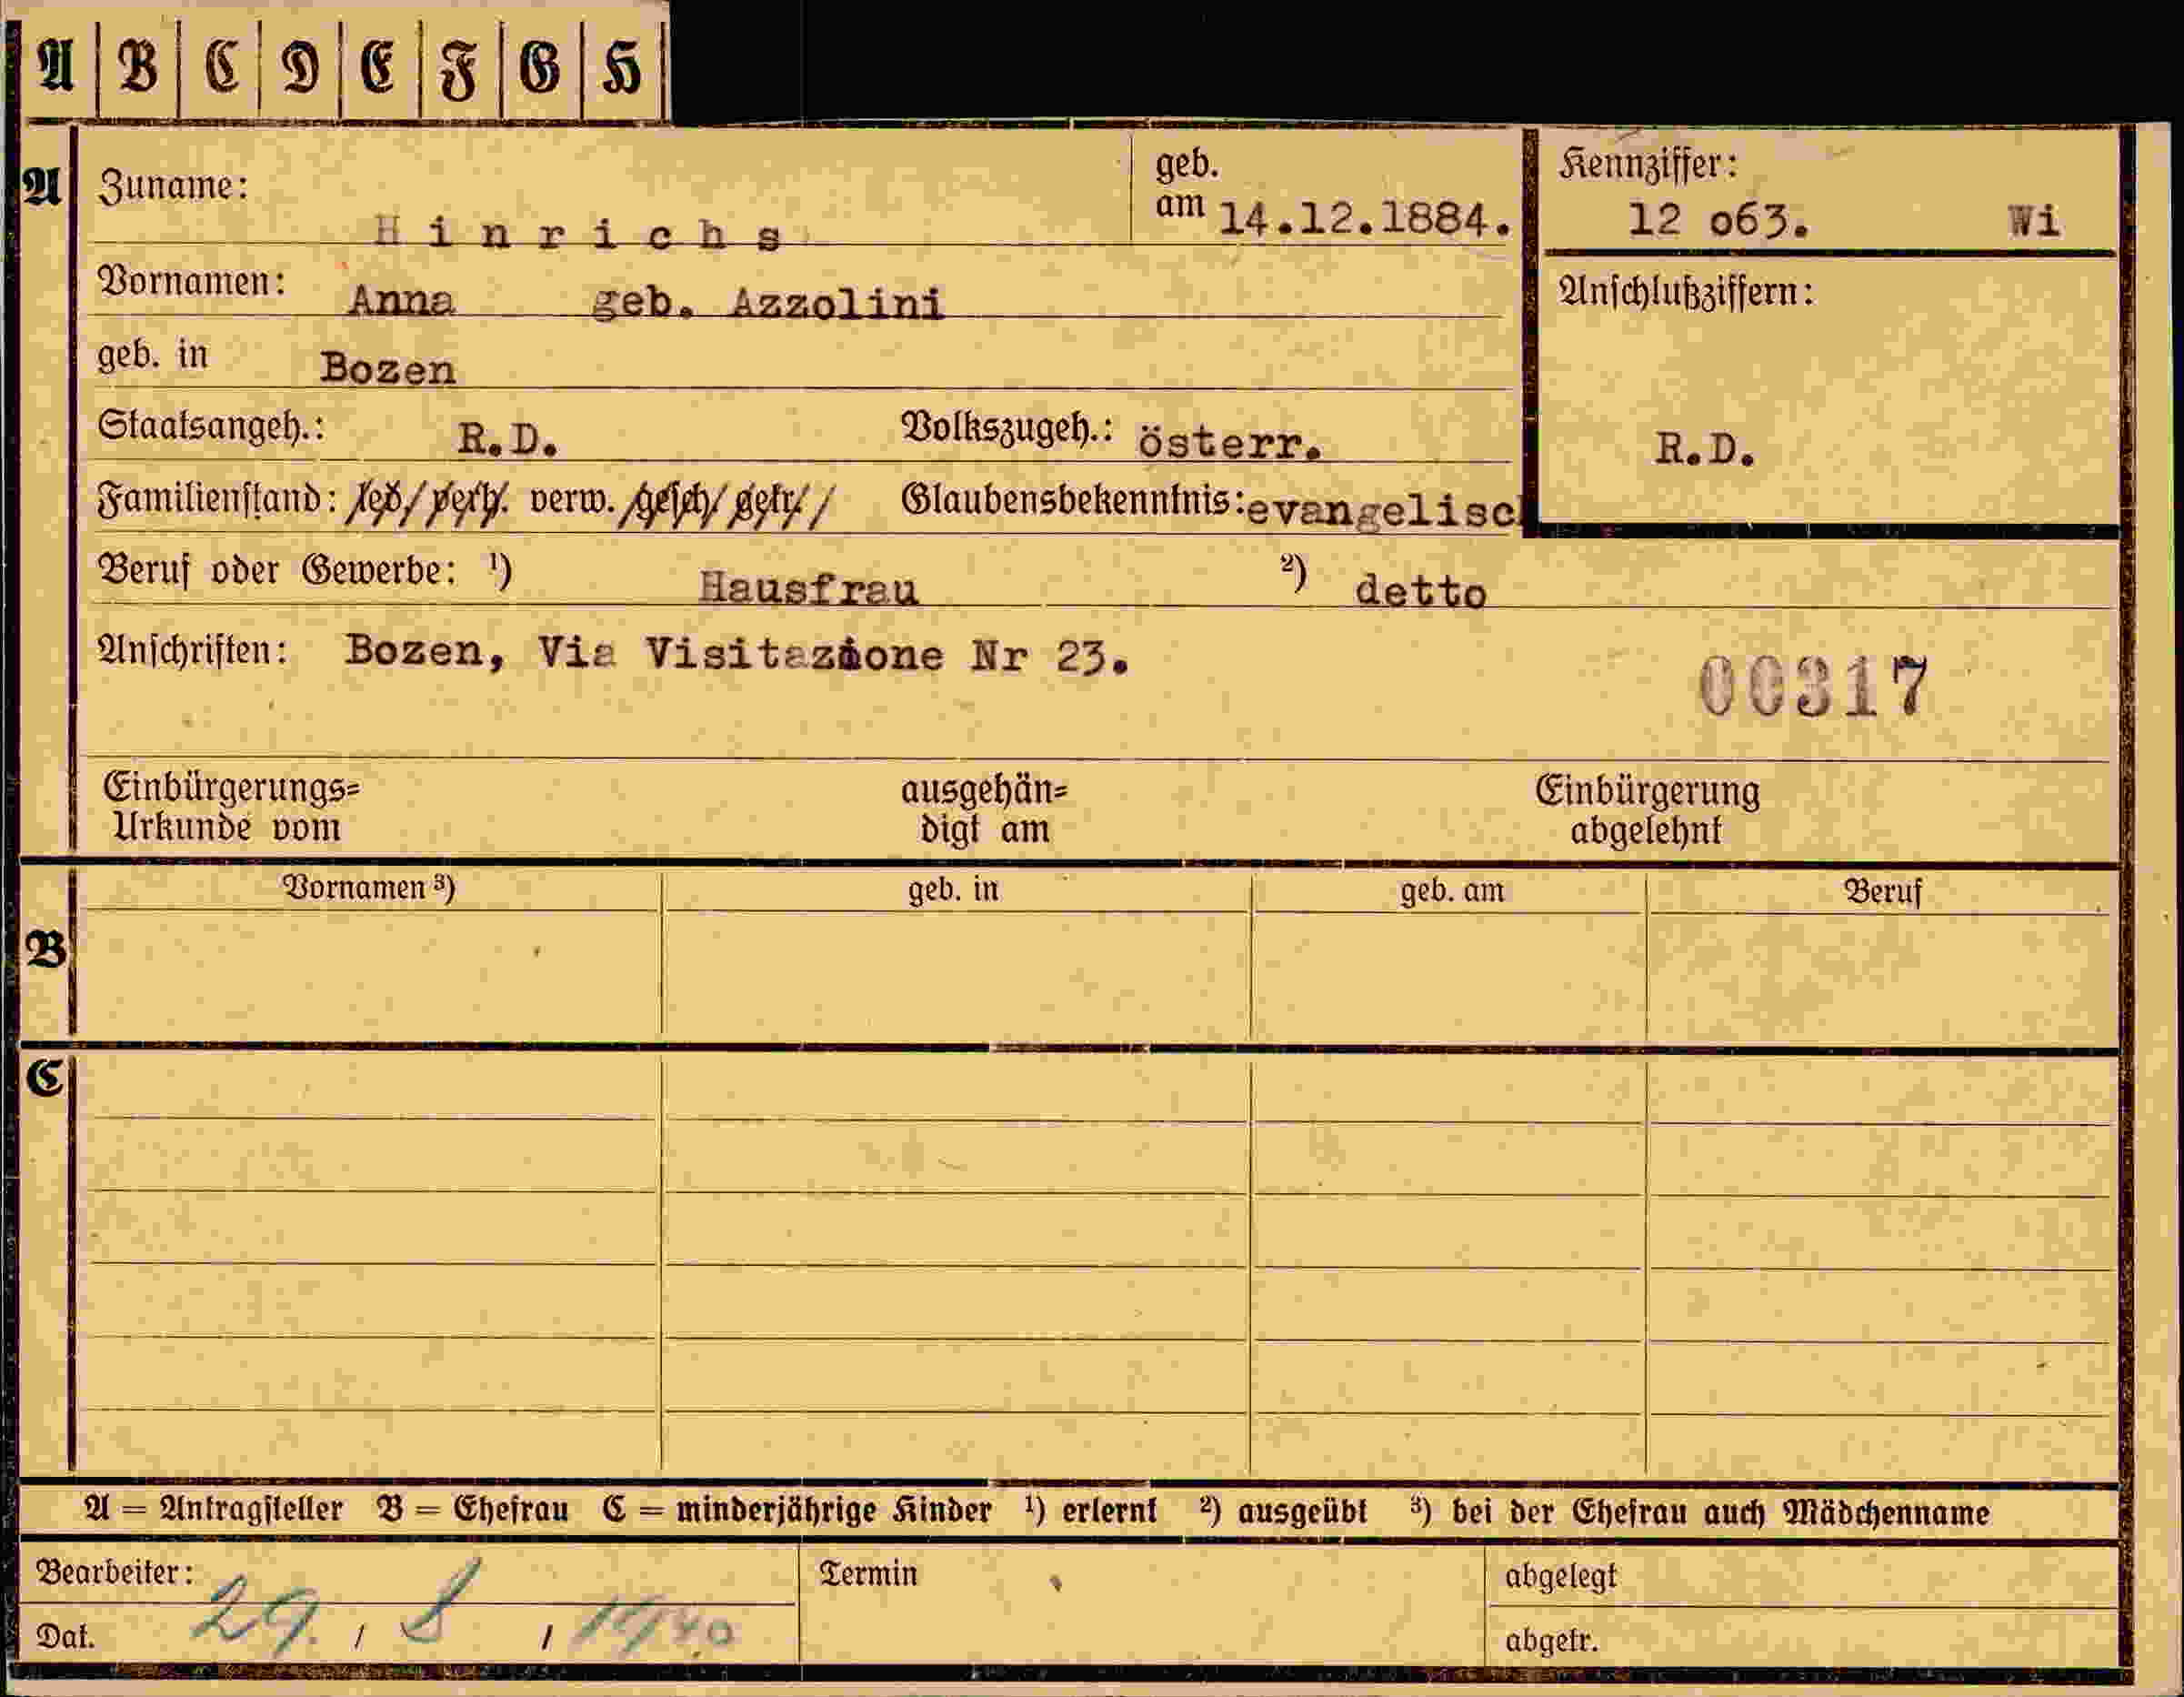 A B C D E F G H
A Zuname: Hinrichs geb. am 14.12.1884. Kennziffer: 12 o63. Wi
Vornamen: Anna geb. Azzolini Anschlußziffern:
geb. in Bozen
Staatsangeh.: R.D. Volkszugeh.: österr. R.D.
Familienstand: led/ verh. verw. /gesch/ getr// Glaubensbekenntnis: evangelisch
Beruf oder Gewerbe: ¹) Hausfrau ²) detto
Anschriften: Bozen, Via Visitazione Nr 23.
00317
Einbürgerungs= ausgehän= Einbürgerung
Urkunde vom digt am abgelehnt
Vornamen ³) geb. in geb. am Beruf
B
C
A = Antragsteller B = Ehefrau C = minderjährige Kinder ¹) erlernt ²) ausgeübt ³) bei der Ehefrau auch Mädchenname
Bearbeiter: Termin abgelegt
Dat. 29. / 8 / 1940 abgetr.